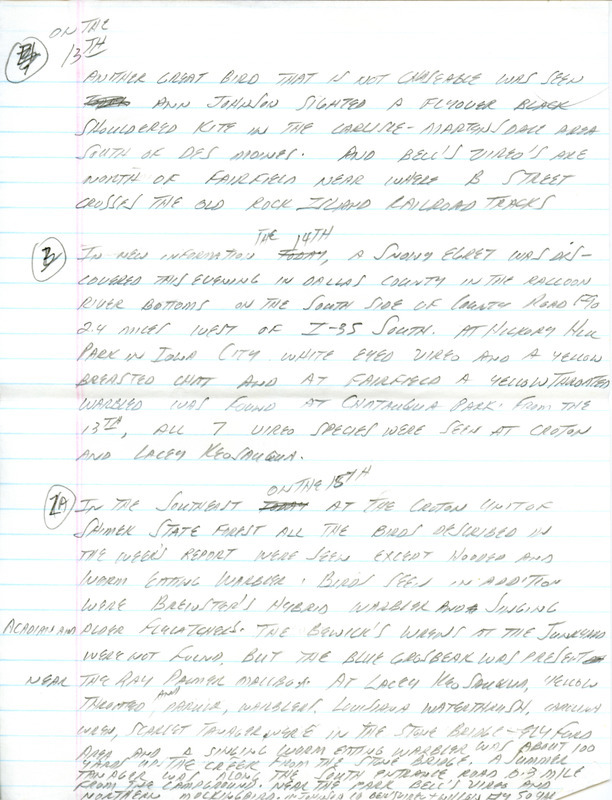 ON THE
13TH
ANOTHER GREAT BIRD THAT IS NOT CHASEABLE WAS SEEN
ANN JOHNSON SIGHTED A FLYOVER BLACK
SHOULDERED KITE IN THE CARLISLE-MARTENSDALE AREA
SOUTH OF DES MOINES. AND BELL'S VIREO'S ARE
NORTH OF FAIRFIELD NEAR WHERE B STREET
CROSSES THE OLD ROCK ISLAND RAILROAD TRACKS
THE 14TH
B IN NEW INFORMATION TODAY, A SNOWY EGRET WAS DIS-
COVERED THIS EVENING IN DALLAS COUNTY IN THE RACCOON
RIVER BOTTOMS ON THE SOUTH SIDE OF COUNTY ROAD F90
2.4 MILES WEST OF I-35 SOUTH. AT HICKORY HILL
PARK IN IOWA CITY WHITE EYED VIREO AND A YELLOW
BREASTED CHAT AND AT FAIRFIELD A YELLOW THROATED
WARBLER WAS FOUND AT CHATAUQUA PARK. FROM THE
13TH, ALL 7 VIREO SPECIES WERE SEEN AT CROTON
AND LACEY KEOSAUQUA.
ON THE 15TH
1A IN THE SOUTHEAST TODAY AT THE CROTON UNIT OF
SHIMEK STATE FOREST ALL THE BIRDS DESCRIBED IN
THE WEEK'S REPORT WERE SEEN EXCEPT HOODED AND
WORM EATING WARBLER. BIRDS SEEN IN ADDITION
WERE BREWSTER'S HYBRID WARBLER AND SINGING
ACADIAN AND ALDER FLYCATCHERS. THE BEWICK'S WRENS AT THE JUNKYARD
WERE NOT FOUND, BUT THE BLUE GROSBEAK WAS PRESENT
NEAR THE RAY PALMER MAILBOX. AT LACEY KEOSAUQUA, YELLOW
THROATED, AND PARULA, WARBLERS, LOUISIANA WATERTHRUSH, CAROLINA
WREN, SCARLET TANAGER WERE IN THE STONE BRIDGE-ELY FORD
AREA AND A SINGING WORM EATING WARBLER WAS ABOUT 100
YARDS UP THE CREEK FROM THE STONE BRIDGE. A SUMMER
TANAGER WAS ALONG THE SOUTH ENTRANCE ROAD 0.3 MILE
FROM THE CAMPGROUND. NEAR THE PARK BELL'S VIREO AND
NORTHERN MOCKINGBIRD